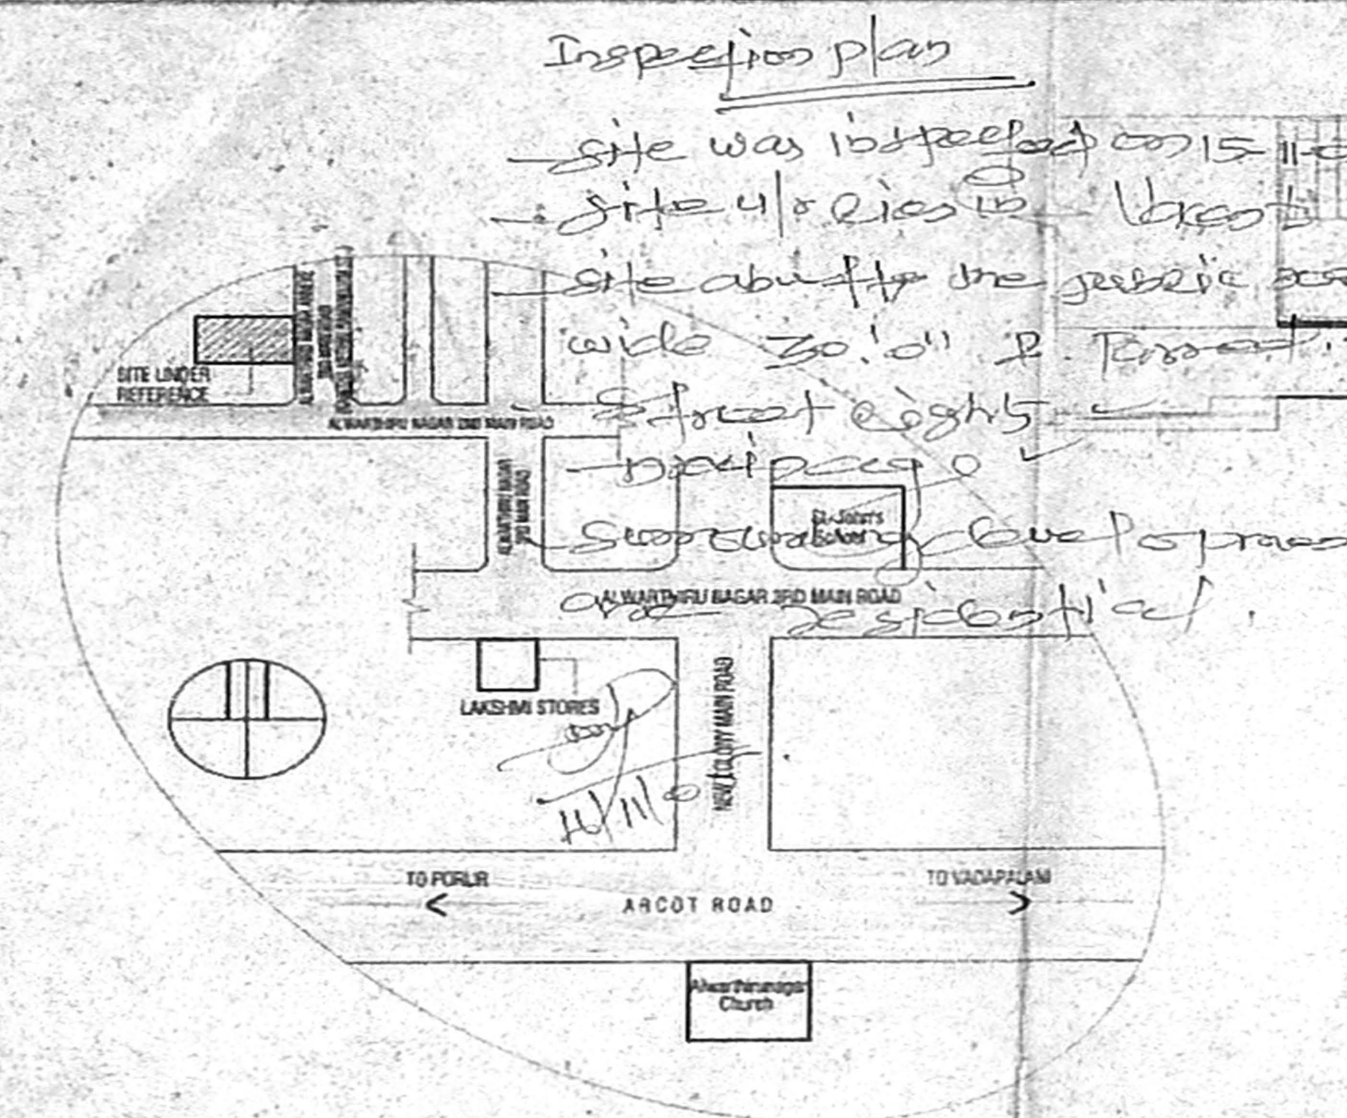 Inspection plan
- site was inspected on 15-11-0
- site u/r lies in Vacant
- site abutts the public
wide 30'.0" &
Street lights ✓
surrounding developmen
are residential.
SITE UNDER
REFERENCE
ALWARTHIRU NAGAR 2ND MAIN ROAD
ALWARTHIRU NAGAR
3RD MAIN ROAD
St. John's
School
ALWARTHIRU NAGAR 3RD MAIN ROAD
LAKSHMI STORES
NEW COLONY MAIN ROAD
16/11/0
TO PORUR
TO VADAPALANI
ARCOT ROAD
Alwarthirunagar
Church